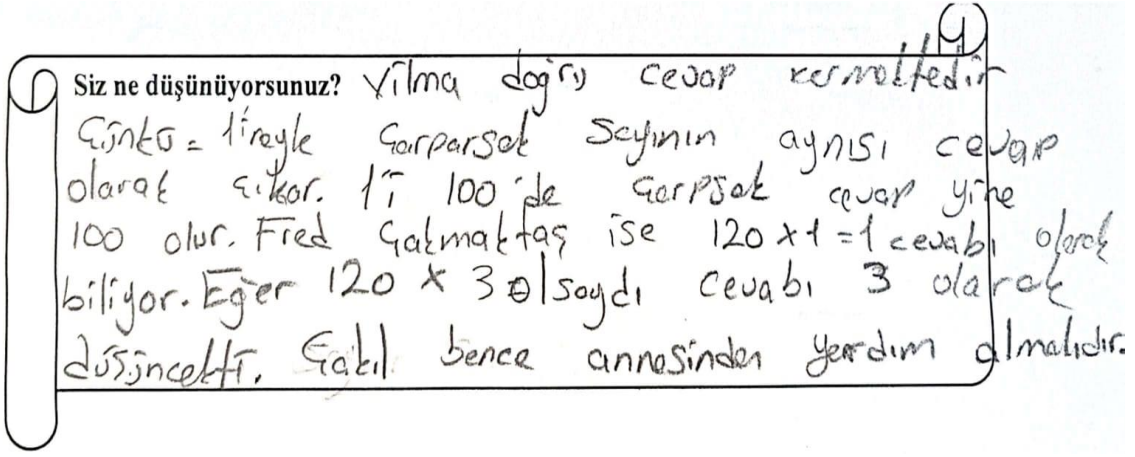 Siz ne düşünüyorsunuz? Vilma doğru cevap vermektedir
Çünkü = 1'reyle Çarparsak Sayının aynısı cevap
olarak çıkar. 1'i 100'de Çarpsak cevap yine
100 olur. Fred Çakmaktaş ise 120 x 1 = 1 cevabı olarak
biliyor. Eğer 120 x 3 olsaydı cevabı 3 olarak
düşüncekti. Çakıl bence annesinden yardım almalıdır.